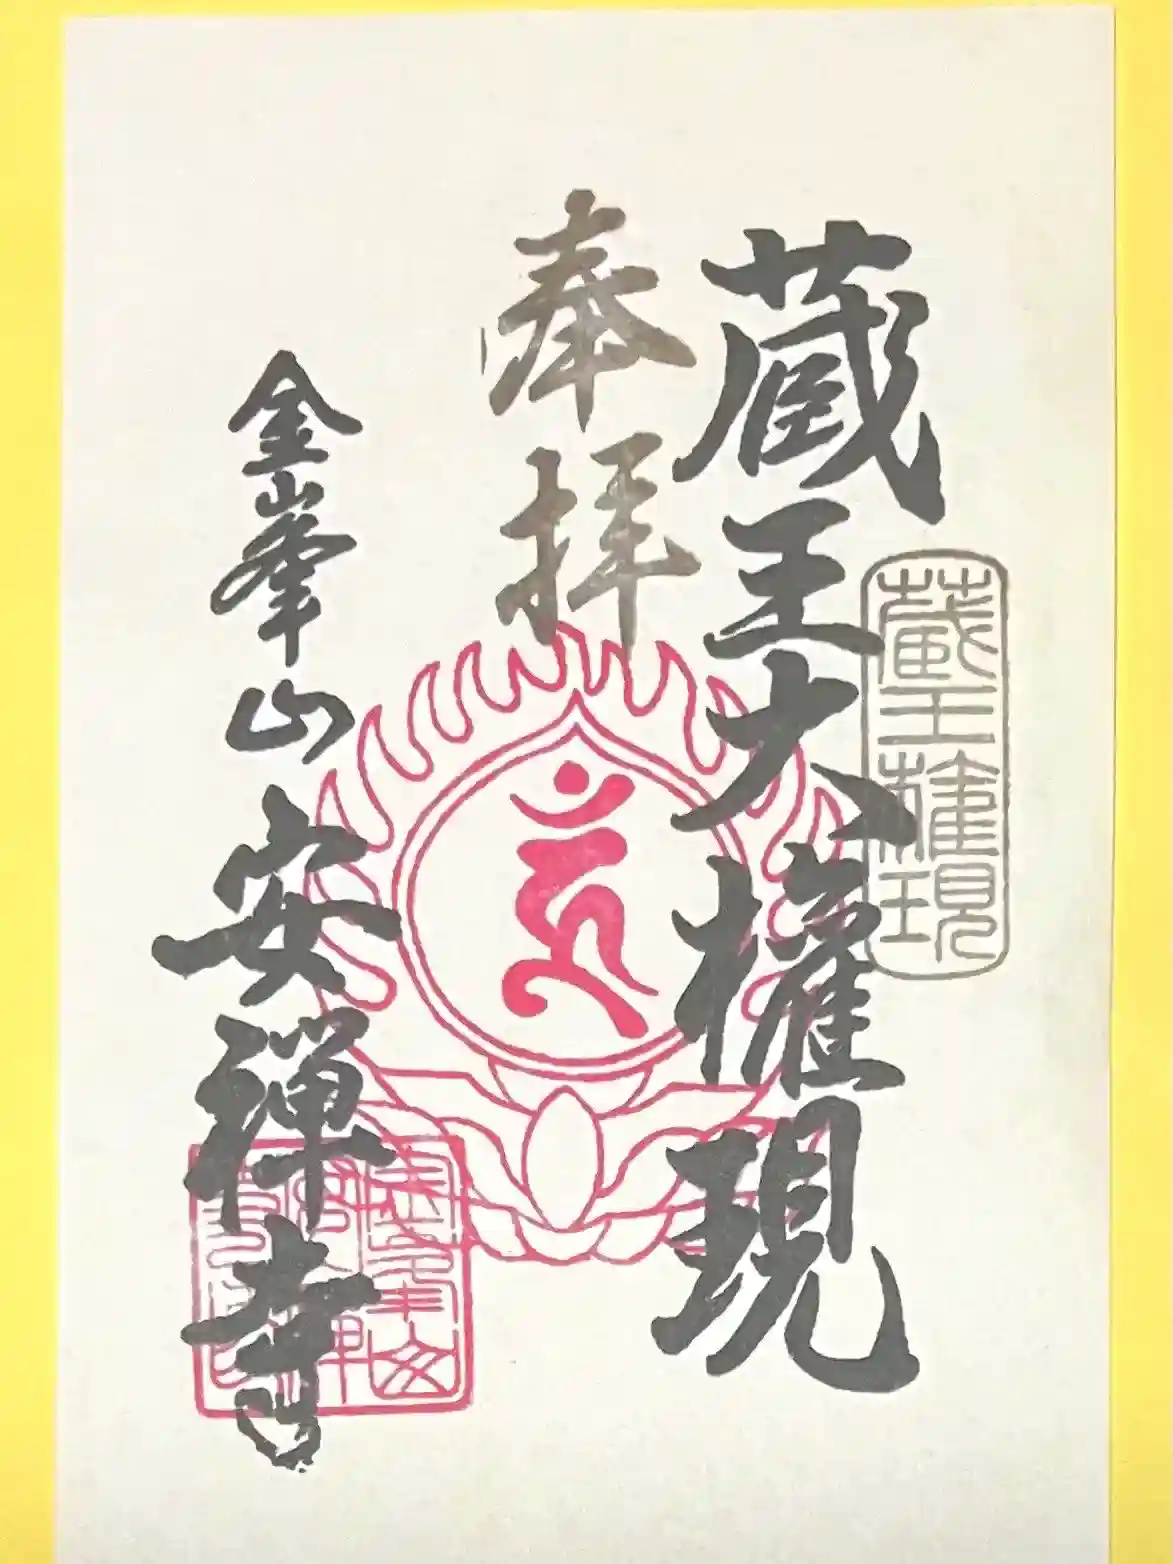 蔵王大権現
蔵王権現
奉拝
金峯山安禅寺